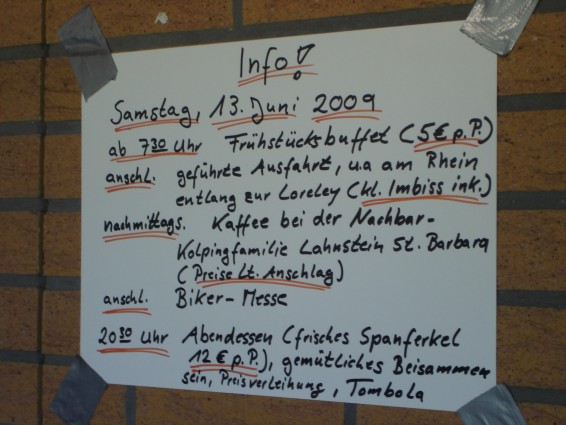 Info!
Samstag, 13. Juni 2009
ab 7³⁰ Uhr Frühstücksbuffet (5€ p.P.)
anschl. geführte Ausfahrt, u.a am Rhein
entlang zur Loreley (kl. Imbiss ink.)
nachmittags. Kaffee bei der Nachbar-
Kolpingfamilie Lahnstein St. Barbara
(Preise lt. Anschlag)
anschl. Biker-Messe
20³⁰ Uhr Abendessen (frisches Spanferkel
12 € p.P.), gemütliches Beisammen
sein, Preisverleihung, Tombola